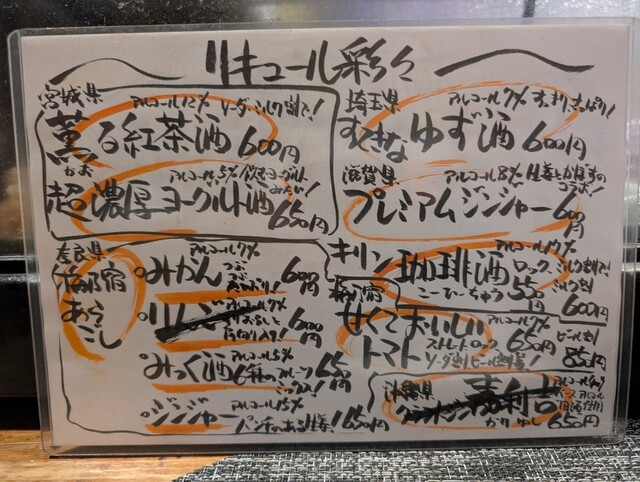 リキュール彩々
宮城県
アルコール12% ソーダ・ミルク割で!
薫る紅茶酒 600円
かお
アルコール5% 飲むヨーグルトみたい!
超濃厚ヨーグルト酒 650円
埼玉県
アルコール7% すっきりさっぱり!
すてきなゆず酒 600円
滋賀県
アルコール8% 生姜とかぼすのコラボ!
プレミアムジンジャー 600円
奈良県
梅乃宿
あらごし
アルコール7%
みかん つぶつぶ 600円
アルコール7%
りんご 600円
アルコール5%
みっく酒 6種のフルーツミックス! 650円
アルコール15%
ジンジャー パンチのある生姜! 650円
キリン 珈琲酒
ロック、ミルク割で!
こーひーちゅう 550円
ミルク割 600円
梅乃宿
甘くておいしい
トマト
アルコール7%
ストレート・ロック 650円
ビール割 850円
ソーダ割
沖縄県
嘉利吉
かりゆし 650円